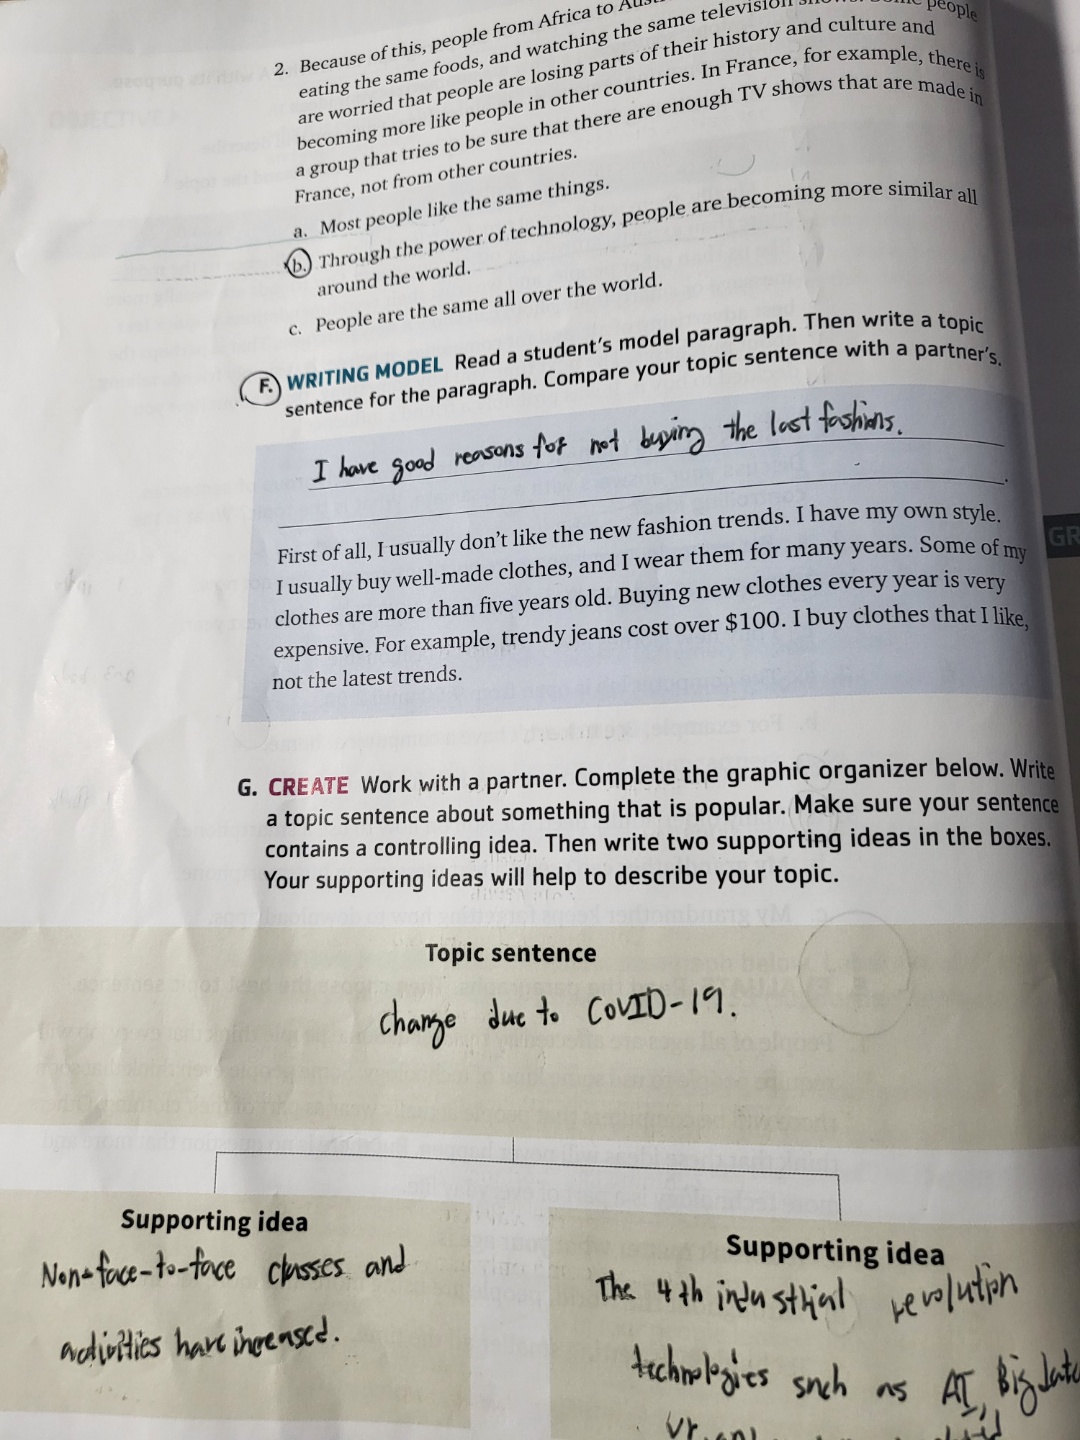 2. Because of this, people from Africa to
eating the same foods, and watching the same television people
are worried that people are losing parts of their history and culture and
becoming more like people in other countries. In France, for example, there is
a group that tries to be sure that there are enough TV shows that are made in
France, not from other countries.
a. Most people like the same things.
b. Through the power of technology, people are becoming more similar all
around the world.
c. People are the same all over the world.
F. WRITING MODEL Read a student's model paragraph. Then write a topic
sentence for the paragraph. Compare your topic sentence with a partner's.
I have good reasons for not buying the last fashions.
First of all, I usually don't like the new fashion trends. I have my own style.
I usually buy well-made clothes, and I wear them for many years. Some of my
clothes are more than five years old. Buying new clothes every year is very
expensive. For example, trendy jeans cost over $100. I buy clothes that I like,
not the latest trends.
GR
G. CREATE Work with a partner. Complete the graphic organizer below. Write
a topic sentence about something that is popular. Make sure your sentence
contains a controlling idea. Then write two supporting ideas in the boxes.
Your supporting ideas will help to describe your topic.
Topic sentence
change due to COVID-19.
Supporting idea
Non-face-to-face classes and
activities have increased.
Supporting idea
The 4th industrial revolution
technologies such as AI, Big data